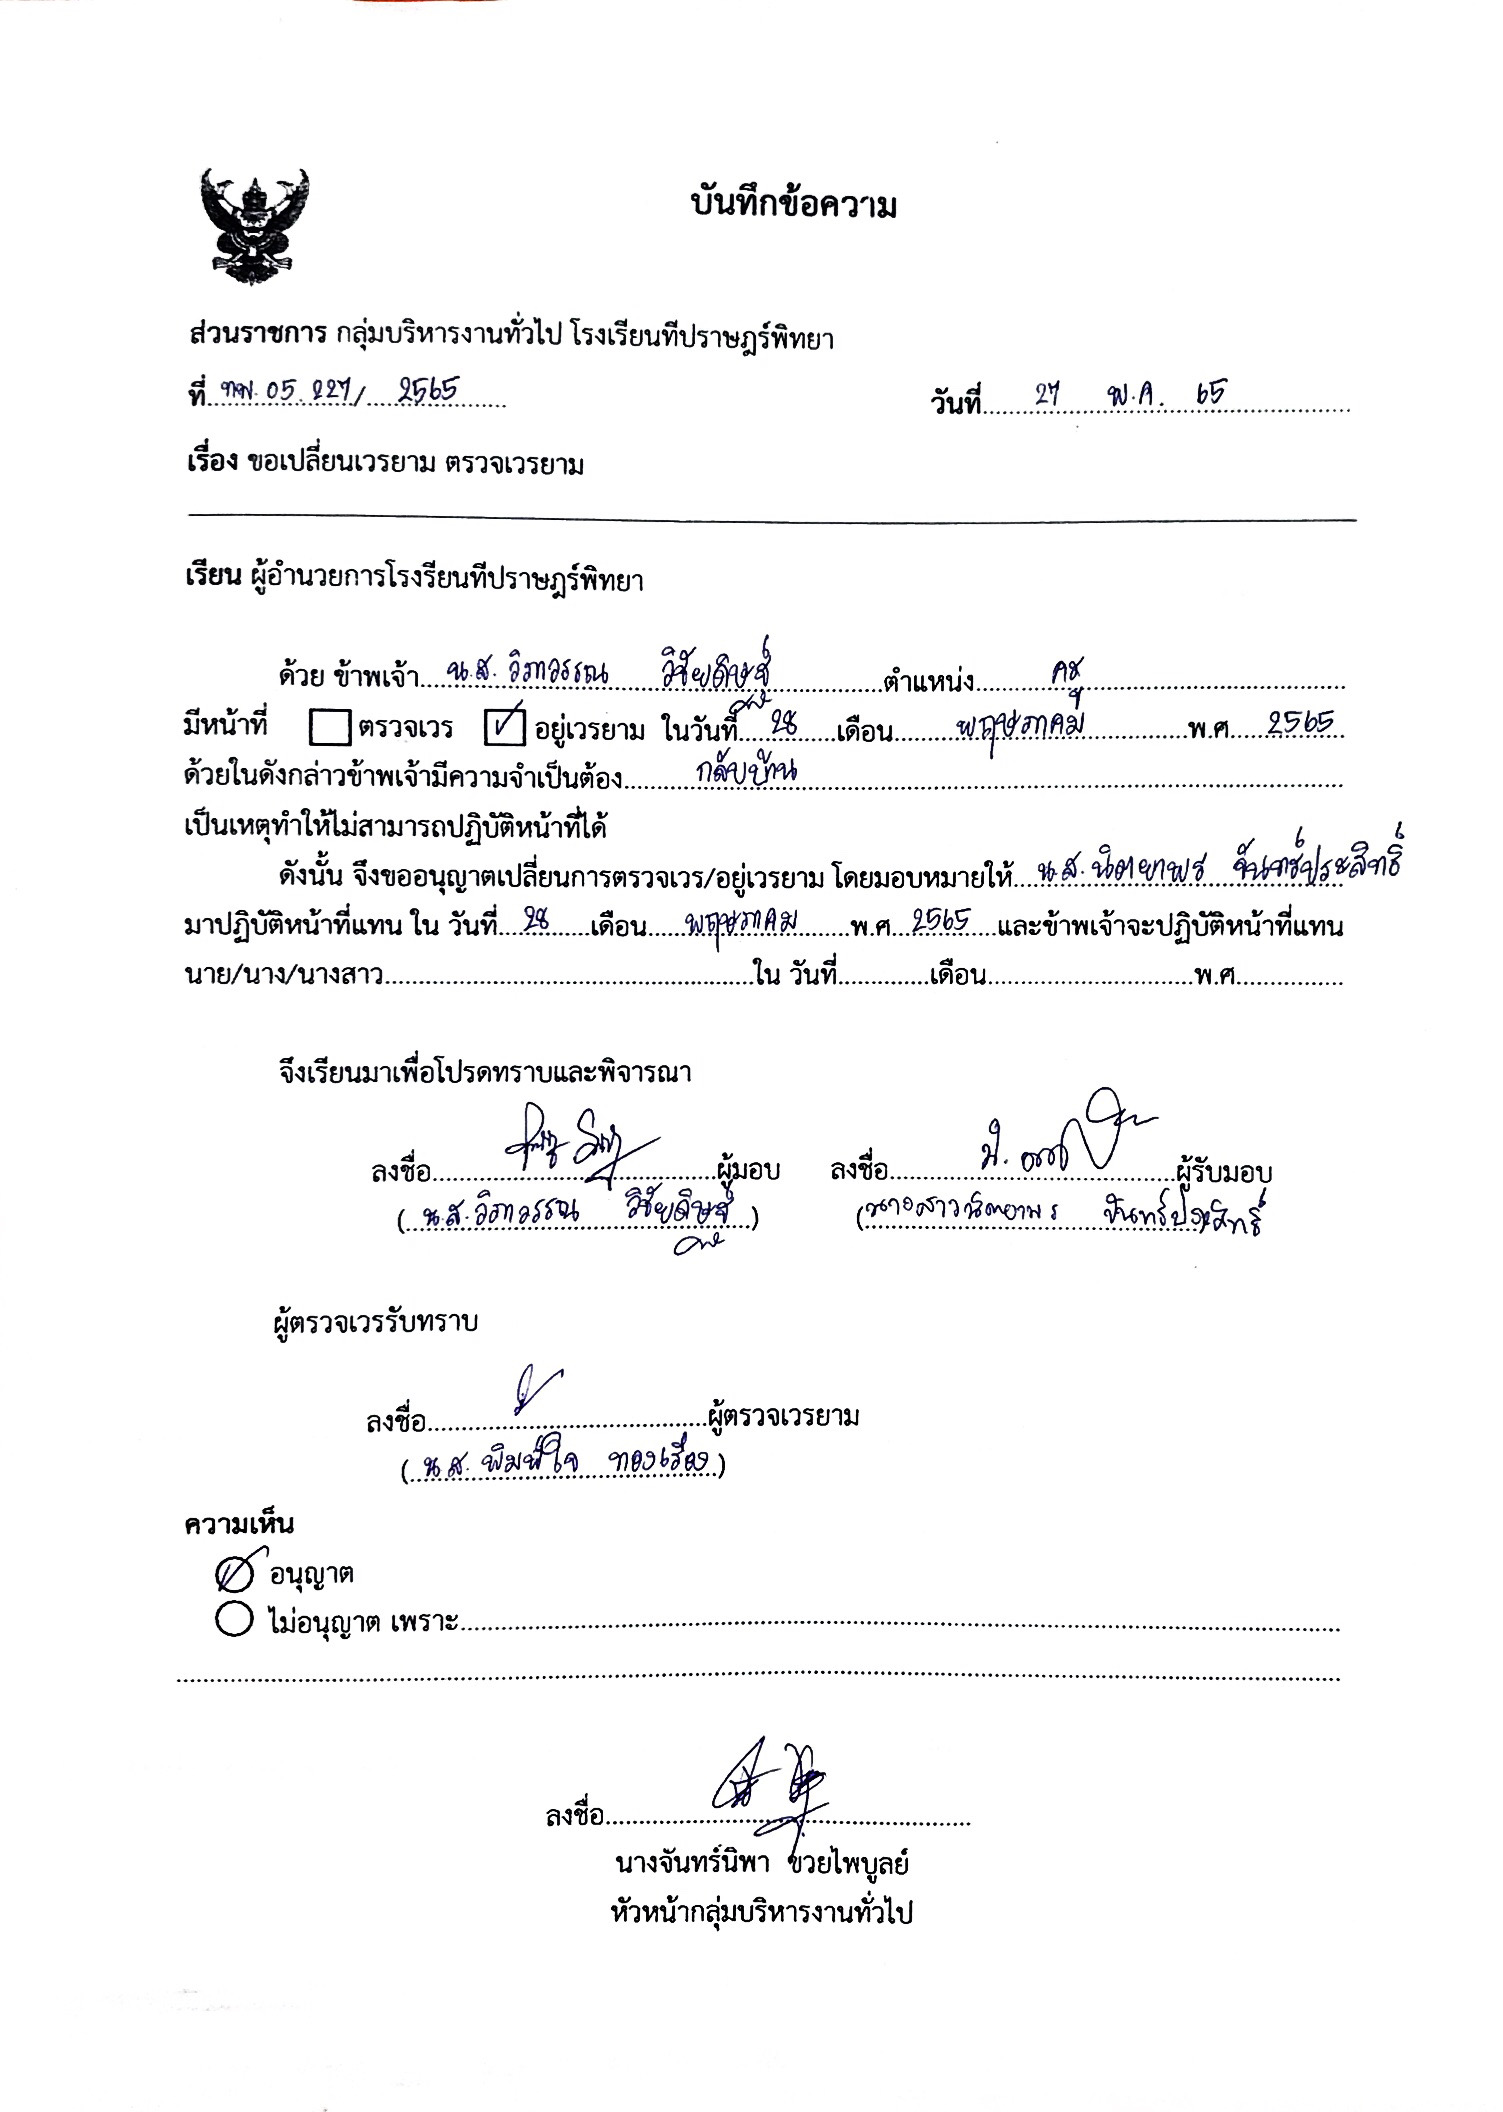 บันทึกข้อความ
ส่วนราชการ กลุ่มบริหารงานทั่วไป โรงเรียนทีปราษฎร์พิทยา
ที่ ทพ. 05. 227/ 2565 วันที่ 27 พ.ค. 65
เรื่อง ขอเปลี่ยนเวรยาม ตรวจเวรยาม
เรียน ผู้อำนวยการโรงรียนทีปราษฎร์พิทยา
ด้วย ข้าพเจ้า น.ส. วิภาวรรณ วิชัยดิษฐ์ ตำแหน่ง ครู
มีหน้าที่ ตรวจเวร ✓ อยู่เวรยาม ในวันที่ 28 เดือน พฤษภาคม พ.ศ. 2565
ด้วยในดังกล่าวข้าพเจ้ามีความจำเป็นต้อง กลับบ้าน
เป็นเหตุทำให้ไม่สามารถปฏิบัติหน้าที่ได้
ดังนั้น จึงขออนุญาตเปลี่ยนการตรวจเวร/อยู่เวรยาม โดยมอบหมายให้ น.ส. นิตยาพร จันทร์ประสิทธิ์
มาปฏิบัติหน้าที่แทน ใน วันที่ 28 เดือน พฤษภาคม พ.ศ. 2565 และข้าพเจ้าจะปฏิบัติหน้าที่แทน
นาย/นาง/นางสาว ใน วันที่ เดือน พ.ศ.
จึงเรียนมาเพื่อโปรดทราบและพิจารณา
ลงชื่อ ผู้มอบ ลงชื่อ ผู้รับมอบ
(น.ส. วิภาวรรณ วิชัยดิษฐ์) (นางสาวนิตยาพร จันทร์ประสิทธิ์
ผู้ตรวจเวรรับทราบ
ลงชื่อ ผู้ตรวจเวรยาม
(น.ส. พิมพ์ใจ ทองเรือง)
ความเห็น
อนุญาต
ไม่อนุญาต เพราะ
ลงชื่อ
นางจันทร์นิพา ขวยไพบูลย์
หัวหน้ากลุ่มบริหารงานทั่วไป